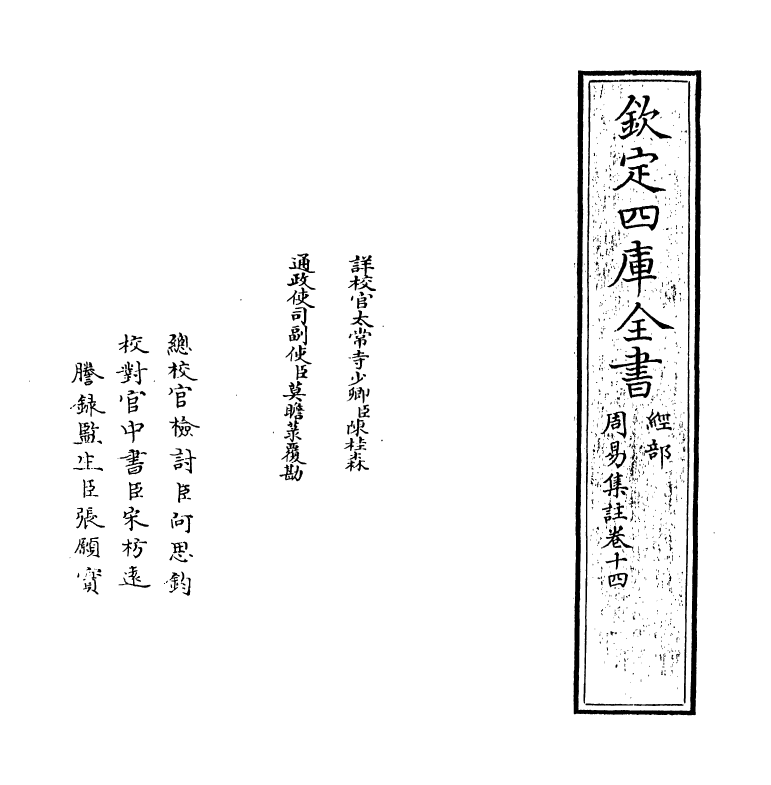 欽定四庫全書
經部
周易集註卷十四
詳校官太常寺少卿臣陳桂森
通政使司副使臣莫瞻菉覆勘
總校官檢討臣何思鈞
校對官中書臣宋枋遠
謄錄監生臣張願寶